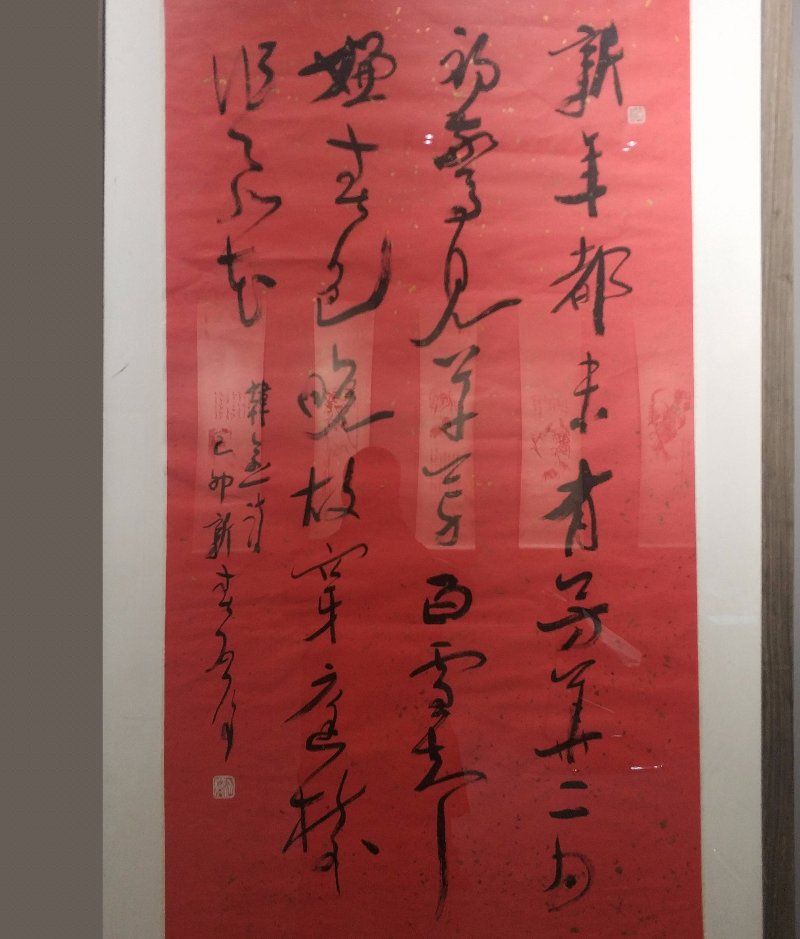 新年都未有芳華二月
初驚見草芽白雪却
嫌春色晚故穿庭樹
作飛花
韓愈詩
己卯新春